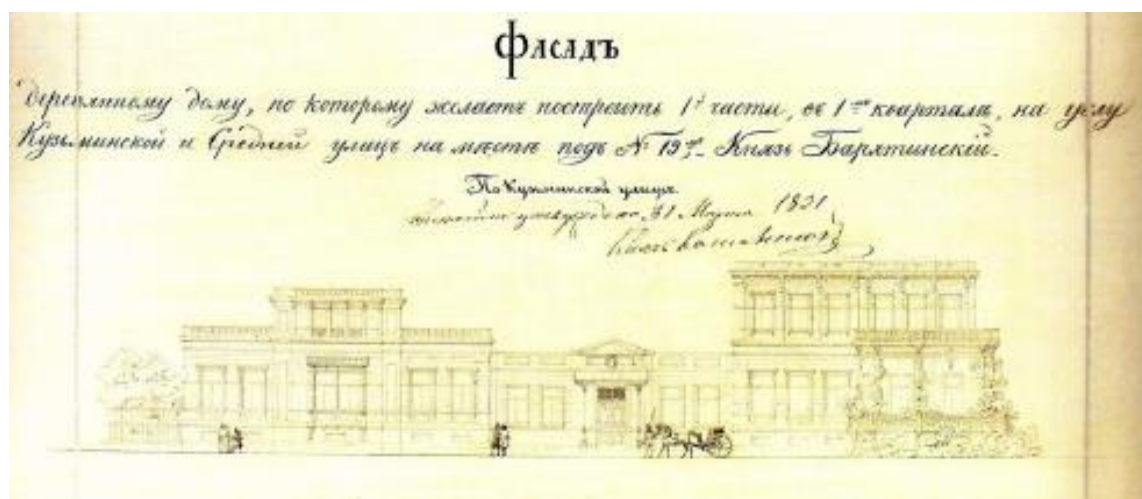 Фасадъ
деревянному дому, по которому желаетъ построить 1й части, въ 1мъ кварталѣ, на углу
Кузьминской и Средней улицъ на мѣстѣ подъ № 19мъ Князь Барятинскій.
По Кузьминской улицѣ
31 Марта 1851